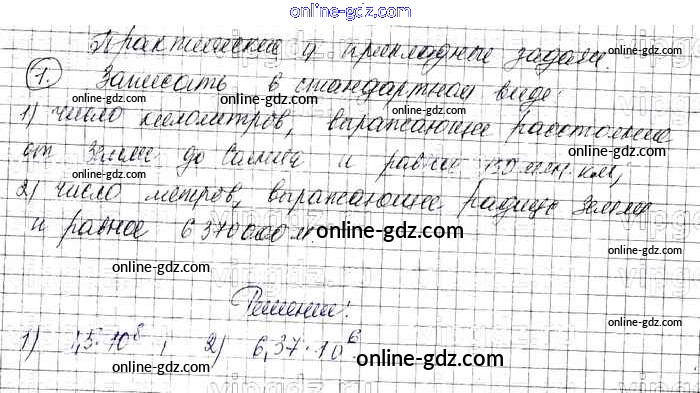 online-gdz.com
Практические и прикладные задачи.
online-gdz.com
1. Записать в стандартном виде:
online-gdz.com
1) число километров, выражающее расстояние
online-gdz.com
от Земли до Солнца и равное 150 млн. км;
online-gdz.com
2) число метров, выражающее радиус Земли
online-gdz.com
и равное 6 370 000 м.
online-gdz.com
online-gdz.com
Решение:
online-gdz.com
1) 1,5·10^8 ; 2) 6,37·10^6
online-gdz.com
online-gdz.com
vipgdz.ru